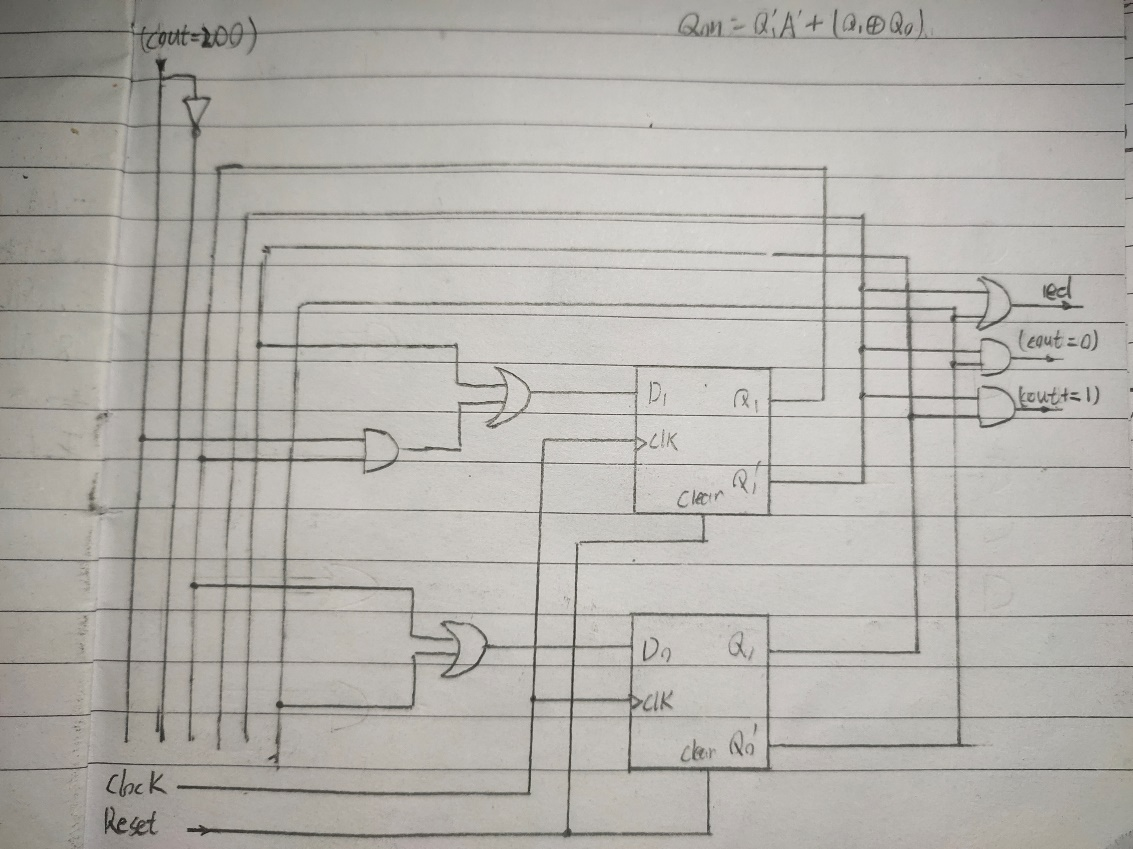 (cout=200)
Q0n = Q1'A' + (Q1⊕Q0)
led
(cout=0)
(cout+=1)
D1
Q1
Clk
Q1'
Clear
D0
Q1
Clk
Clear
Q0'
Clock
Reset